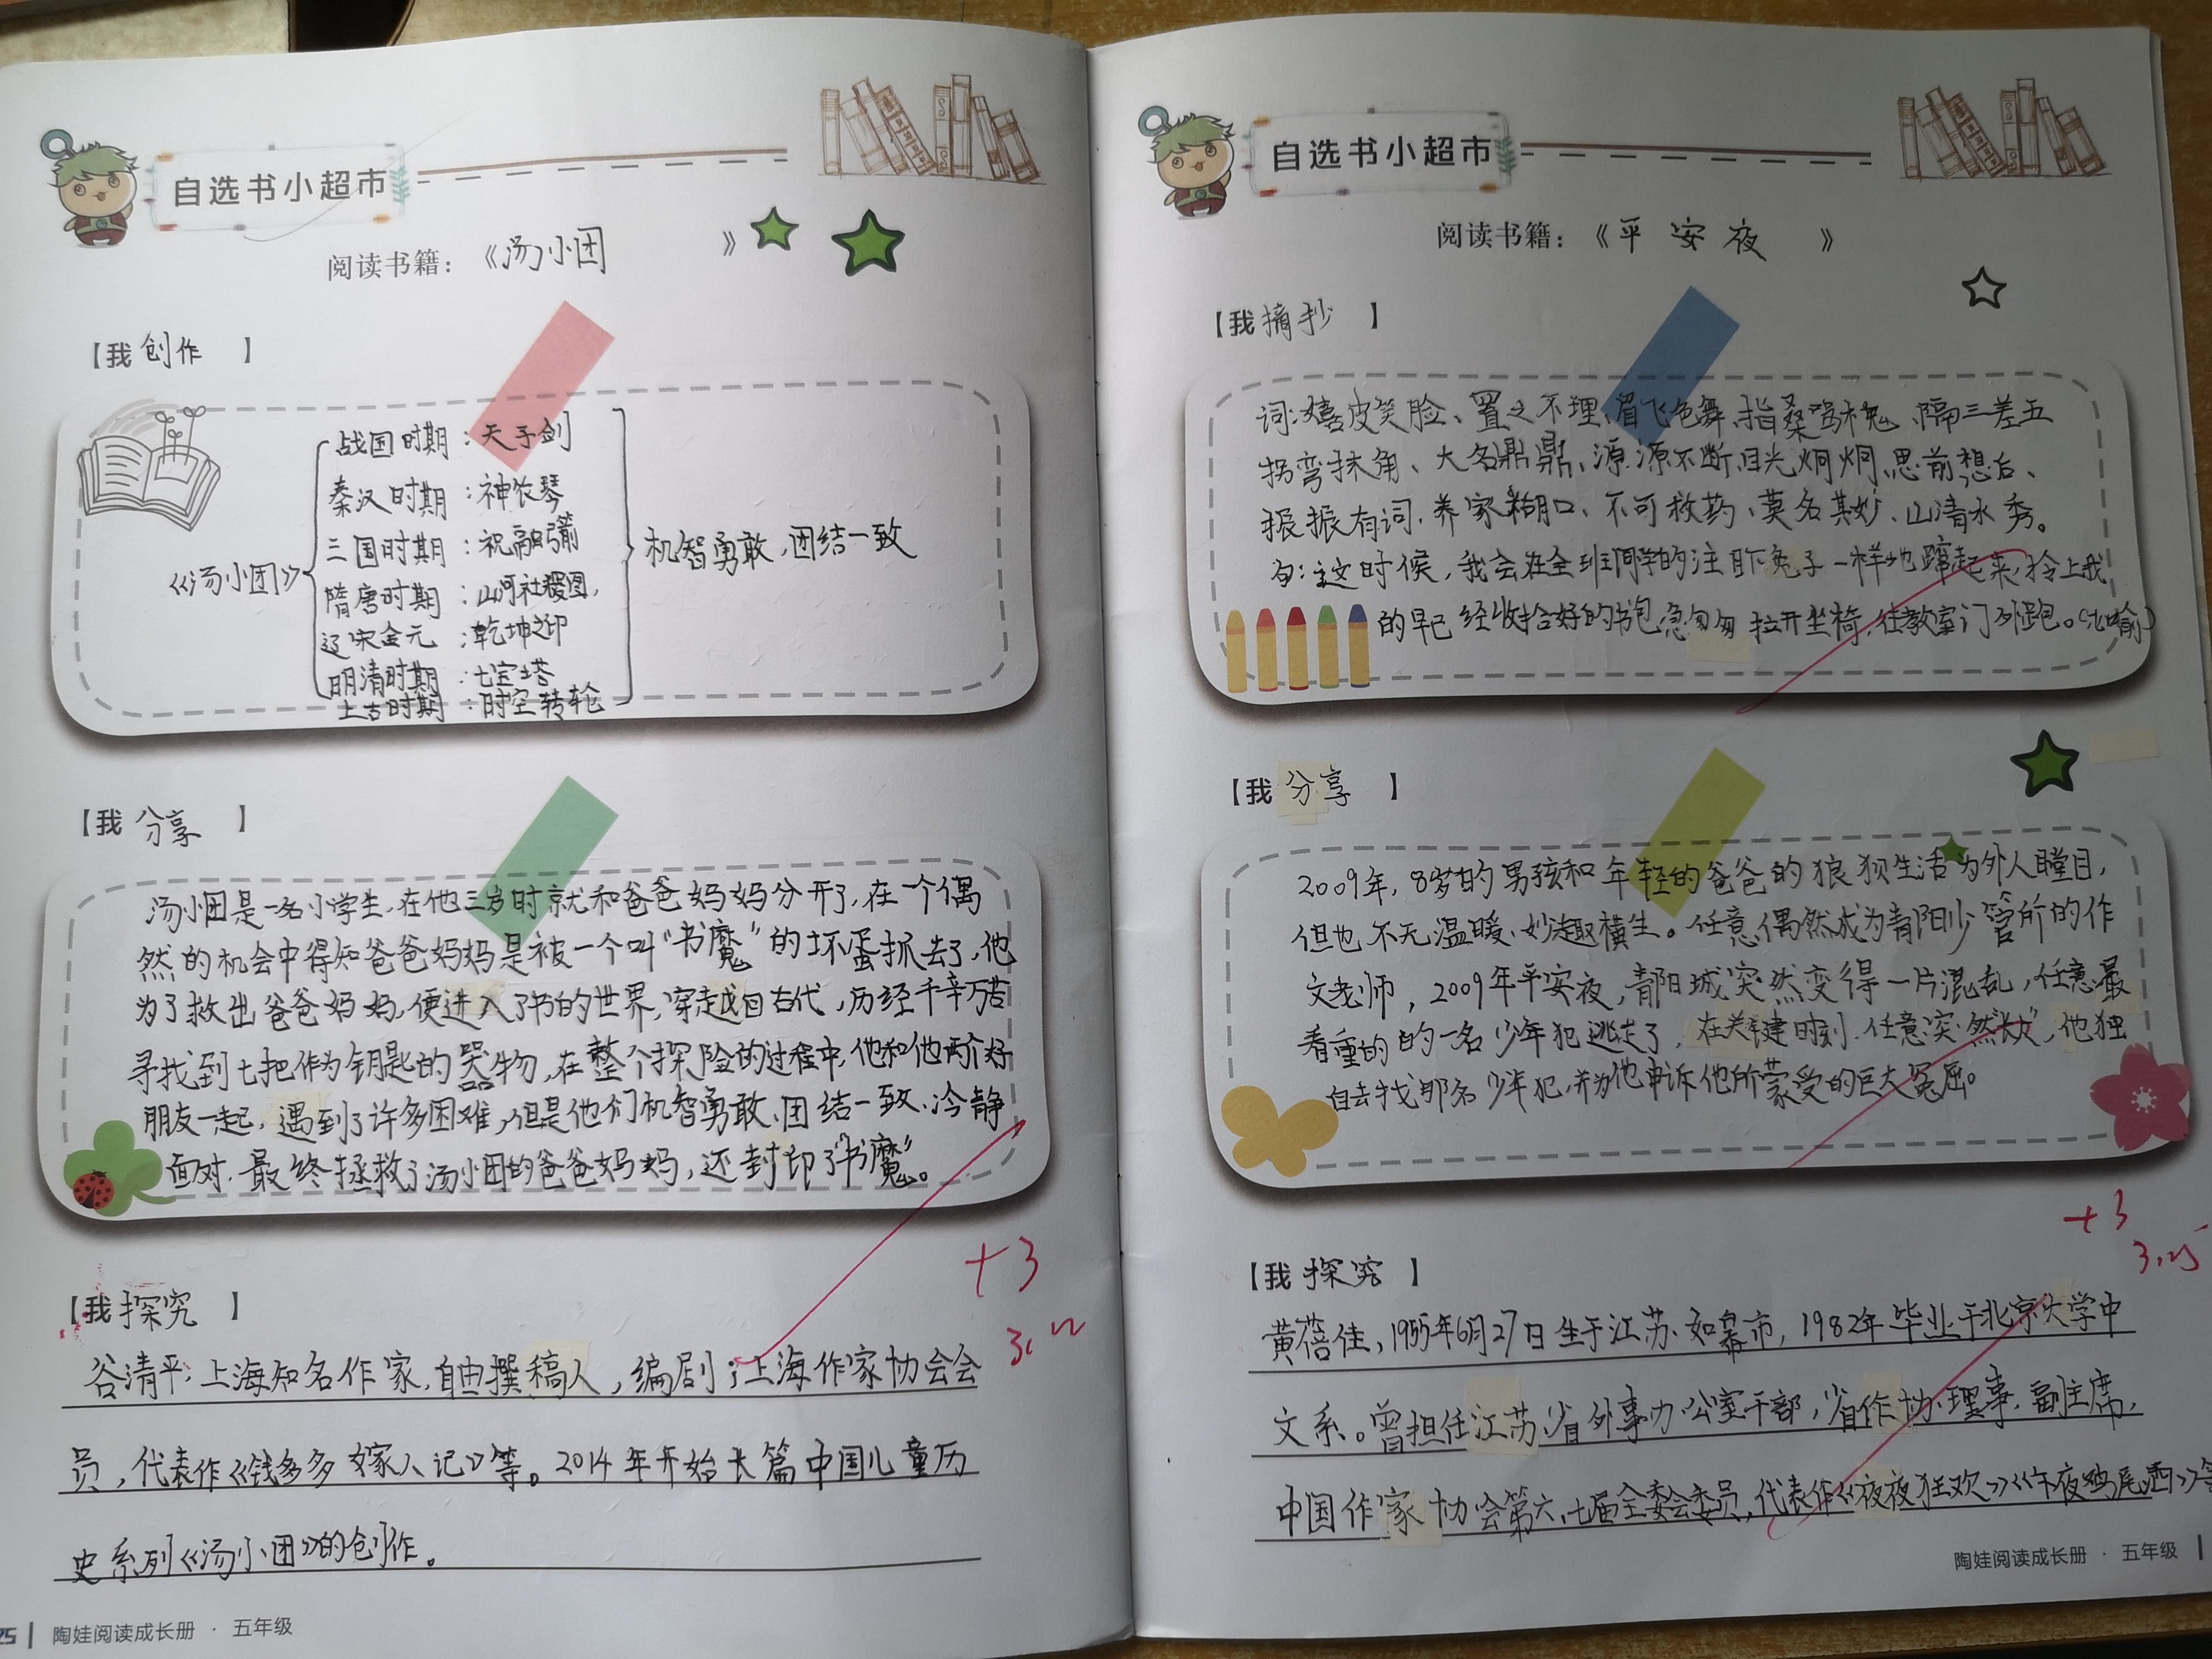 自选书小超市
阅读书籍：《汤小团》
【我创作】
《汤小团》
战国时期：天子剑
秦汉时期：神农琴
三国时期：祝融箭
隋唐时期：山河社稷图，
辽宋金元：乾坤之印
明清时期：七宝塔
上古时期：时空转轮
机智勇敢，团结一致
【我分享】
汤小团是一名小学生，在他三岁时就和爸爸妈妈分开了，在一个偶
然的机会中得知爸爸妈妈是被一个叫“书魔”的坏蛋抓去了，他
为了救出爸爸妈妈，便进入了书的世界，穿越回古代，历经千辛万苦
寻找到七把作为钥匙的器物，在整个探险的过程中，他和他两个好
朋友一起，遇到了许多困难，但是他们机智勇敢、团结一致、冷静
面对，最终拯救了汤小团的爸爸妈妈，还封印了“书魔”。
+3
【我探究】
谷清平：上海知名作家，自由撰稿人，编剧；上海作家协会会
员，代表作《钱多多嫁人记》等。2014年开始长篇中国儿童历
史系列《汤小团》的创作。
25 | 陶娃阅读成长册 · 五年级
自选书小超市
阅读书籍：《平安夜》
【我摘抄】
词：嬉皮笑脸、置之不理、眉飞色舞、指桑骂槐、隔三差五
拐弯抹角、大名鼎鼎、源源不断、目光炯炯、思前想后、
振振有词、养家糊口、不可救药、莫名其妙、山清水秀。
句：这时候，我会在全班同学的注目下兔子一样地蹿起来，拎上我
的早已经收拾好的书包，急匆匆拉开坐椅，往教室门外跑。（比喻）
【我分享】
2009年，8岁的男孩和年轻的爸爸的狼狈生活为外人瞠目，
但也不无温暖、妙趣横生。任意偶然成为青阳少管所的作
文老师，2009年平安夜，青阳城突然变得一片混乱，任意最
看重的的一名少年犯逃走了，在关键时刻，任意突然“长大”，他独
自去找那名少年犯，并为他申诉他所蒙受的巨大冤屈。
+3
3.25
【我探究】
黄蓓佳，1955年6月27日生于江苏如皋市，1982年毕业于北京大学中
文系。曾担任江苏省外事办公室干部，省作协理事、副主席，
中国作家协会第六、七届全委会委员，代表作《夜夜狂欢》《午夜鸡尾酒》等
陶娃阅读成长册 · 五年级 |